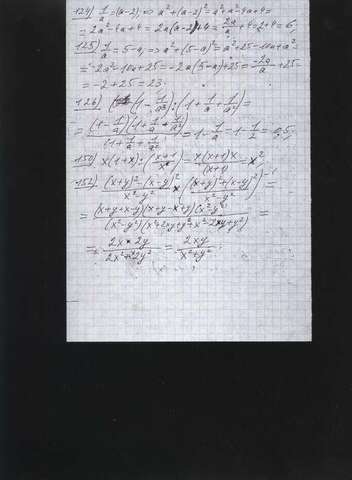 124) 1/a = (a-2), => a²+(a-2)² = a²+a²-4a+4 =
= 2a²-4a+4 = 2a(a-2)+4 = 2a/a +4 = 2+4 = 6;
125) 1/a = 5-a, => a²+(5-a)² = a²+25-10a+a² =
= 2a²-10a+25 = -2a(5-a)+25 = -2a/a +25 =
= -2+25 = 23.
126) (1-1/a³):(1+1/a+1/a²) =
= (1-1/a)(1+1/a+1/a²)/(1+1/a+1/a²) = 1-1/a = 1-1/2 = 0,5;
150) x(1+x):(x+1)/x = x(1+x)x/(x+1) = x²;
= (x+y+x-y)(x+y-x+y)(x²-y²)/(x²-y²)(x²+2xy+y²+x²-2xy+y²) =
= 2x·2y/2x²+2y² = 2xy/x²+y².